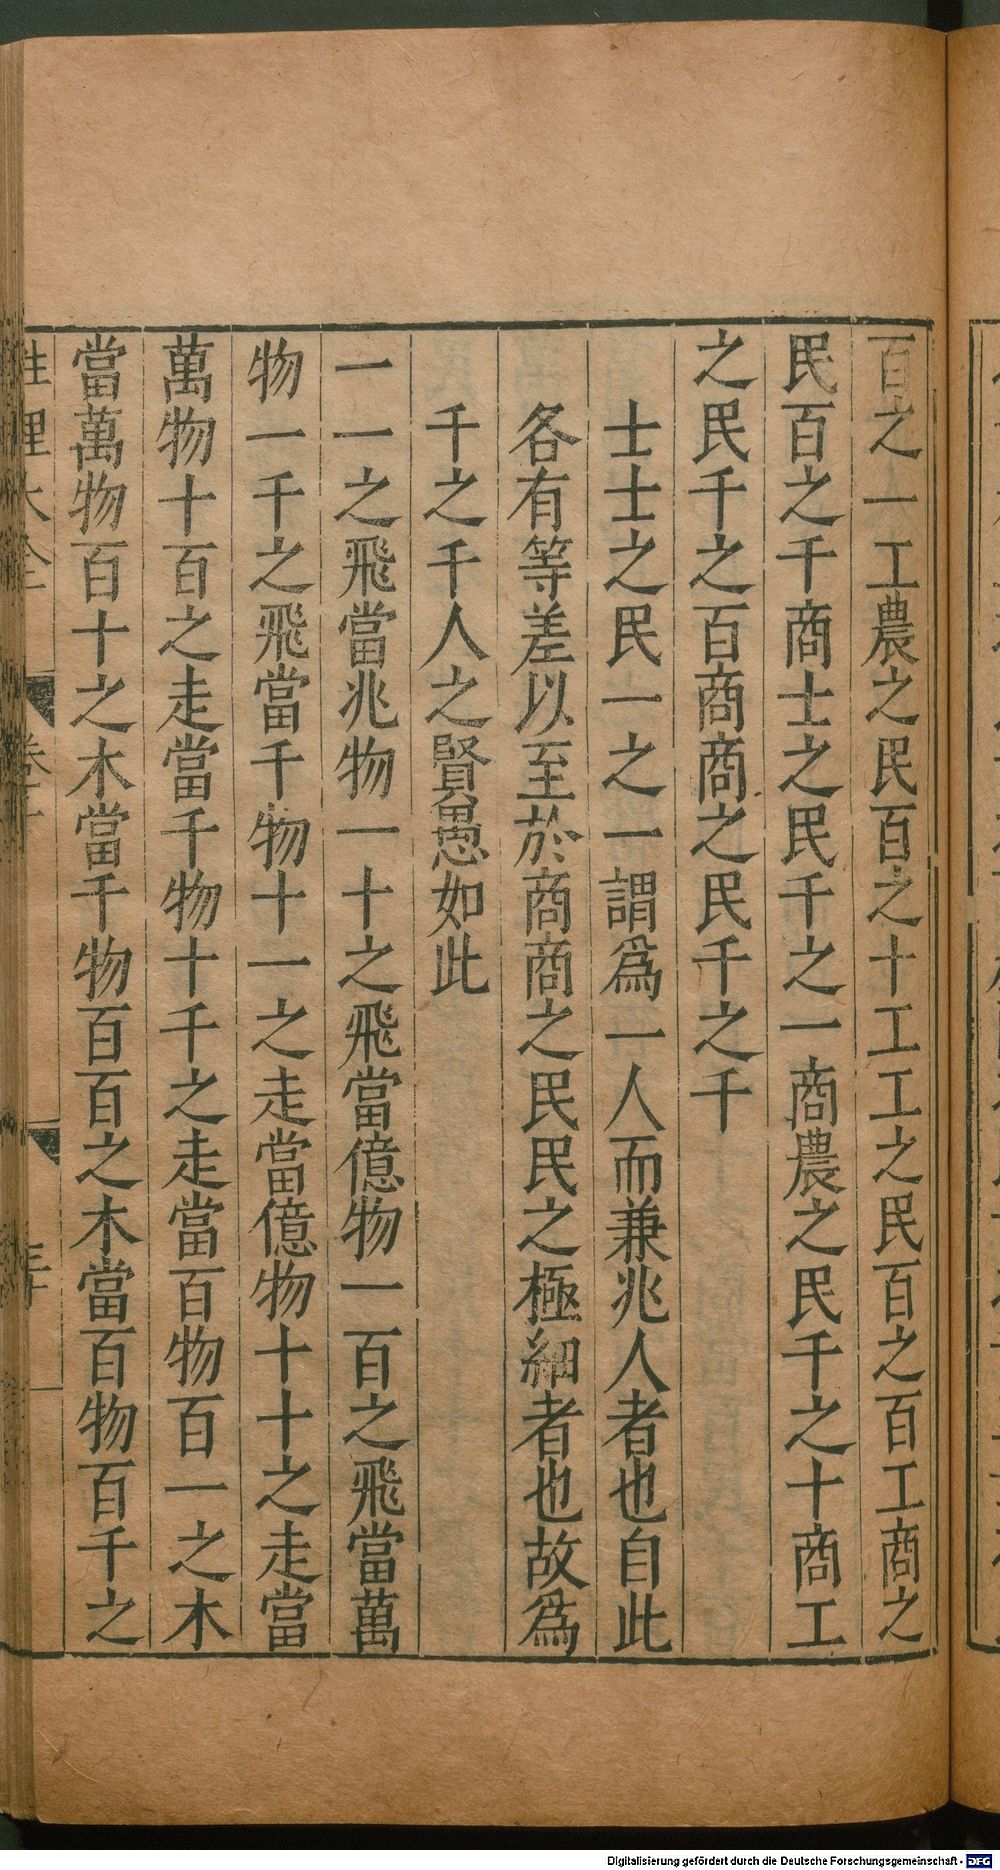 百之一工農之民百之十工工之民百之百工商之
民百之千商士之民千之一商農之民千之十商工
之民千之百商商之民千之千
士士之民一之一謂爲一人而兼兆人者也自此
各有等差以至於商商之民民之極細者也故爲
千之千人之賢愚如此
一一之飛當兆物一十之飛當億物一百之飛當萬
物一千之飛當千物十一之走當億物十十之走當
萬物十百之走當千物十千之走當百物百一之木
當萬物百十之木當千物百百之木當百物百千之
性理大全
Digitalisierung gefördert durch die Deutsche Forschungsgemeinschaft - DFG